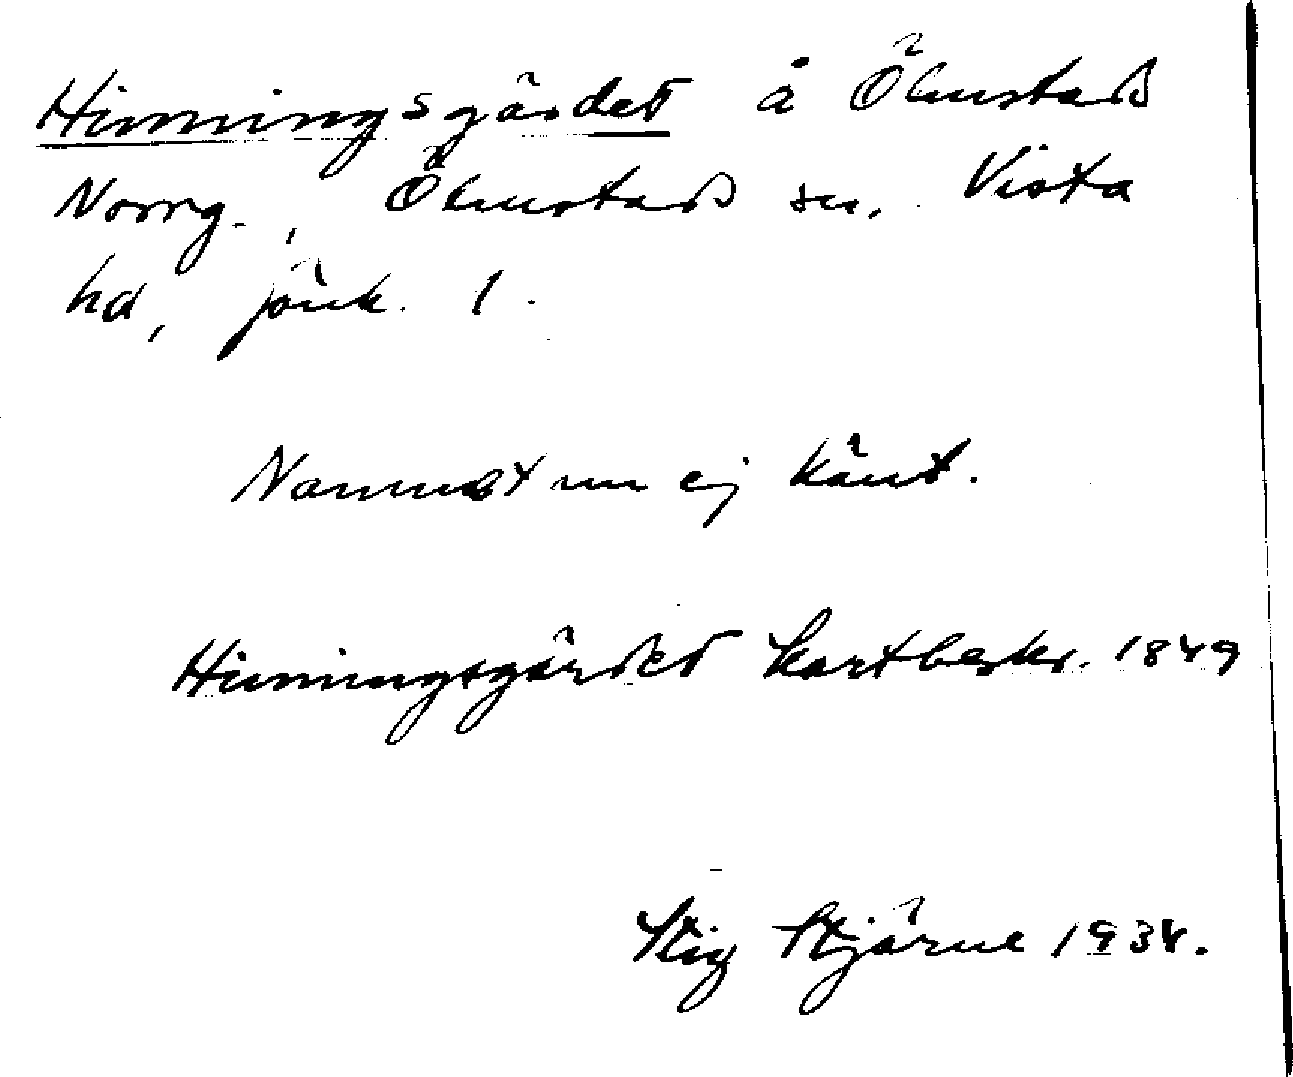 Hinningsgärdet å Ölmstads
Norrg., Ölmstads sn. Vista
hd, Jönk. l.
Namnet nu ej känt.
Hinningsgärdet Kartbeskr. 1849
Stig Stjärne 1934.